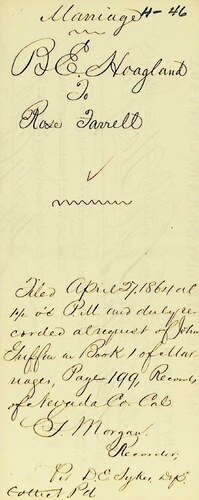 Marriage H-46
B E Hoagland
To
Rose Farrell
Filed April 2, 1864 at
4 o'c P.M and duly re
corded at request of John
Guffin in Book 1 of Mar
riages, Page 199, Records
of Nevada Co. Cal
Morgan
Recorder,
Per D. E. Sykes, Dep.
Pd